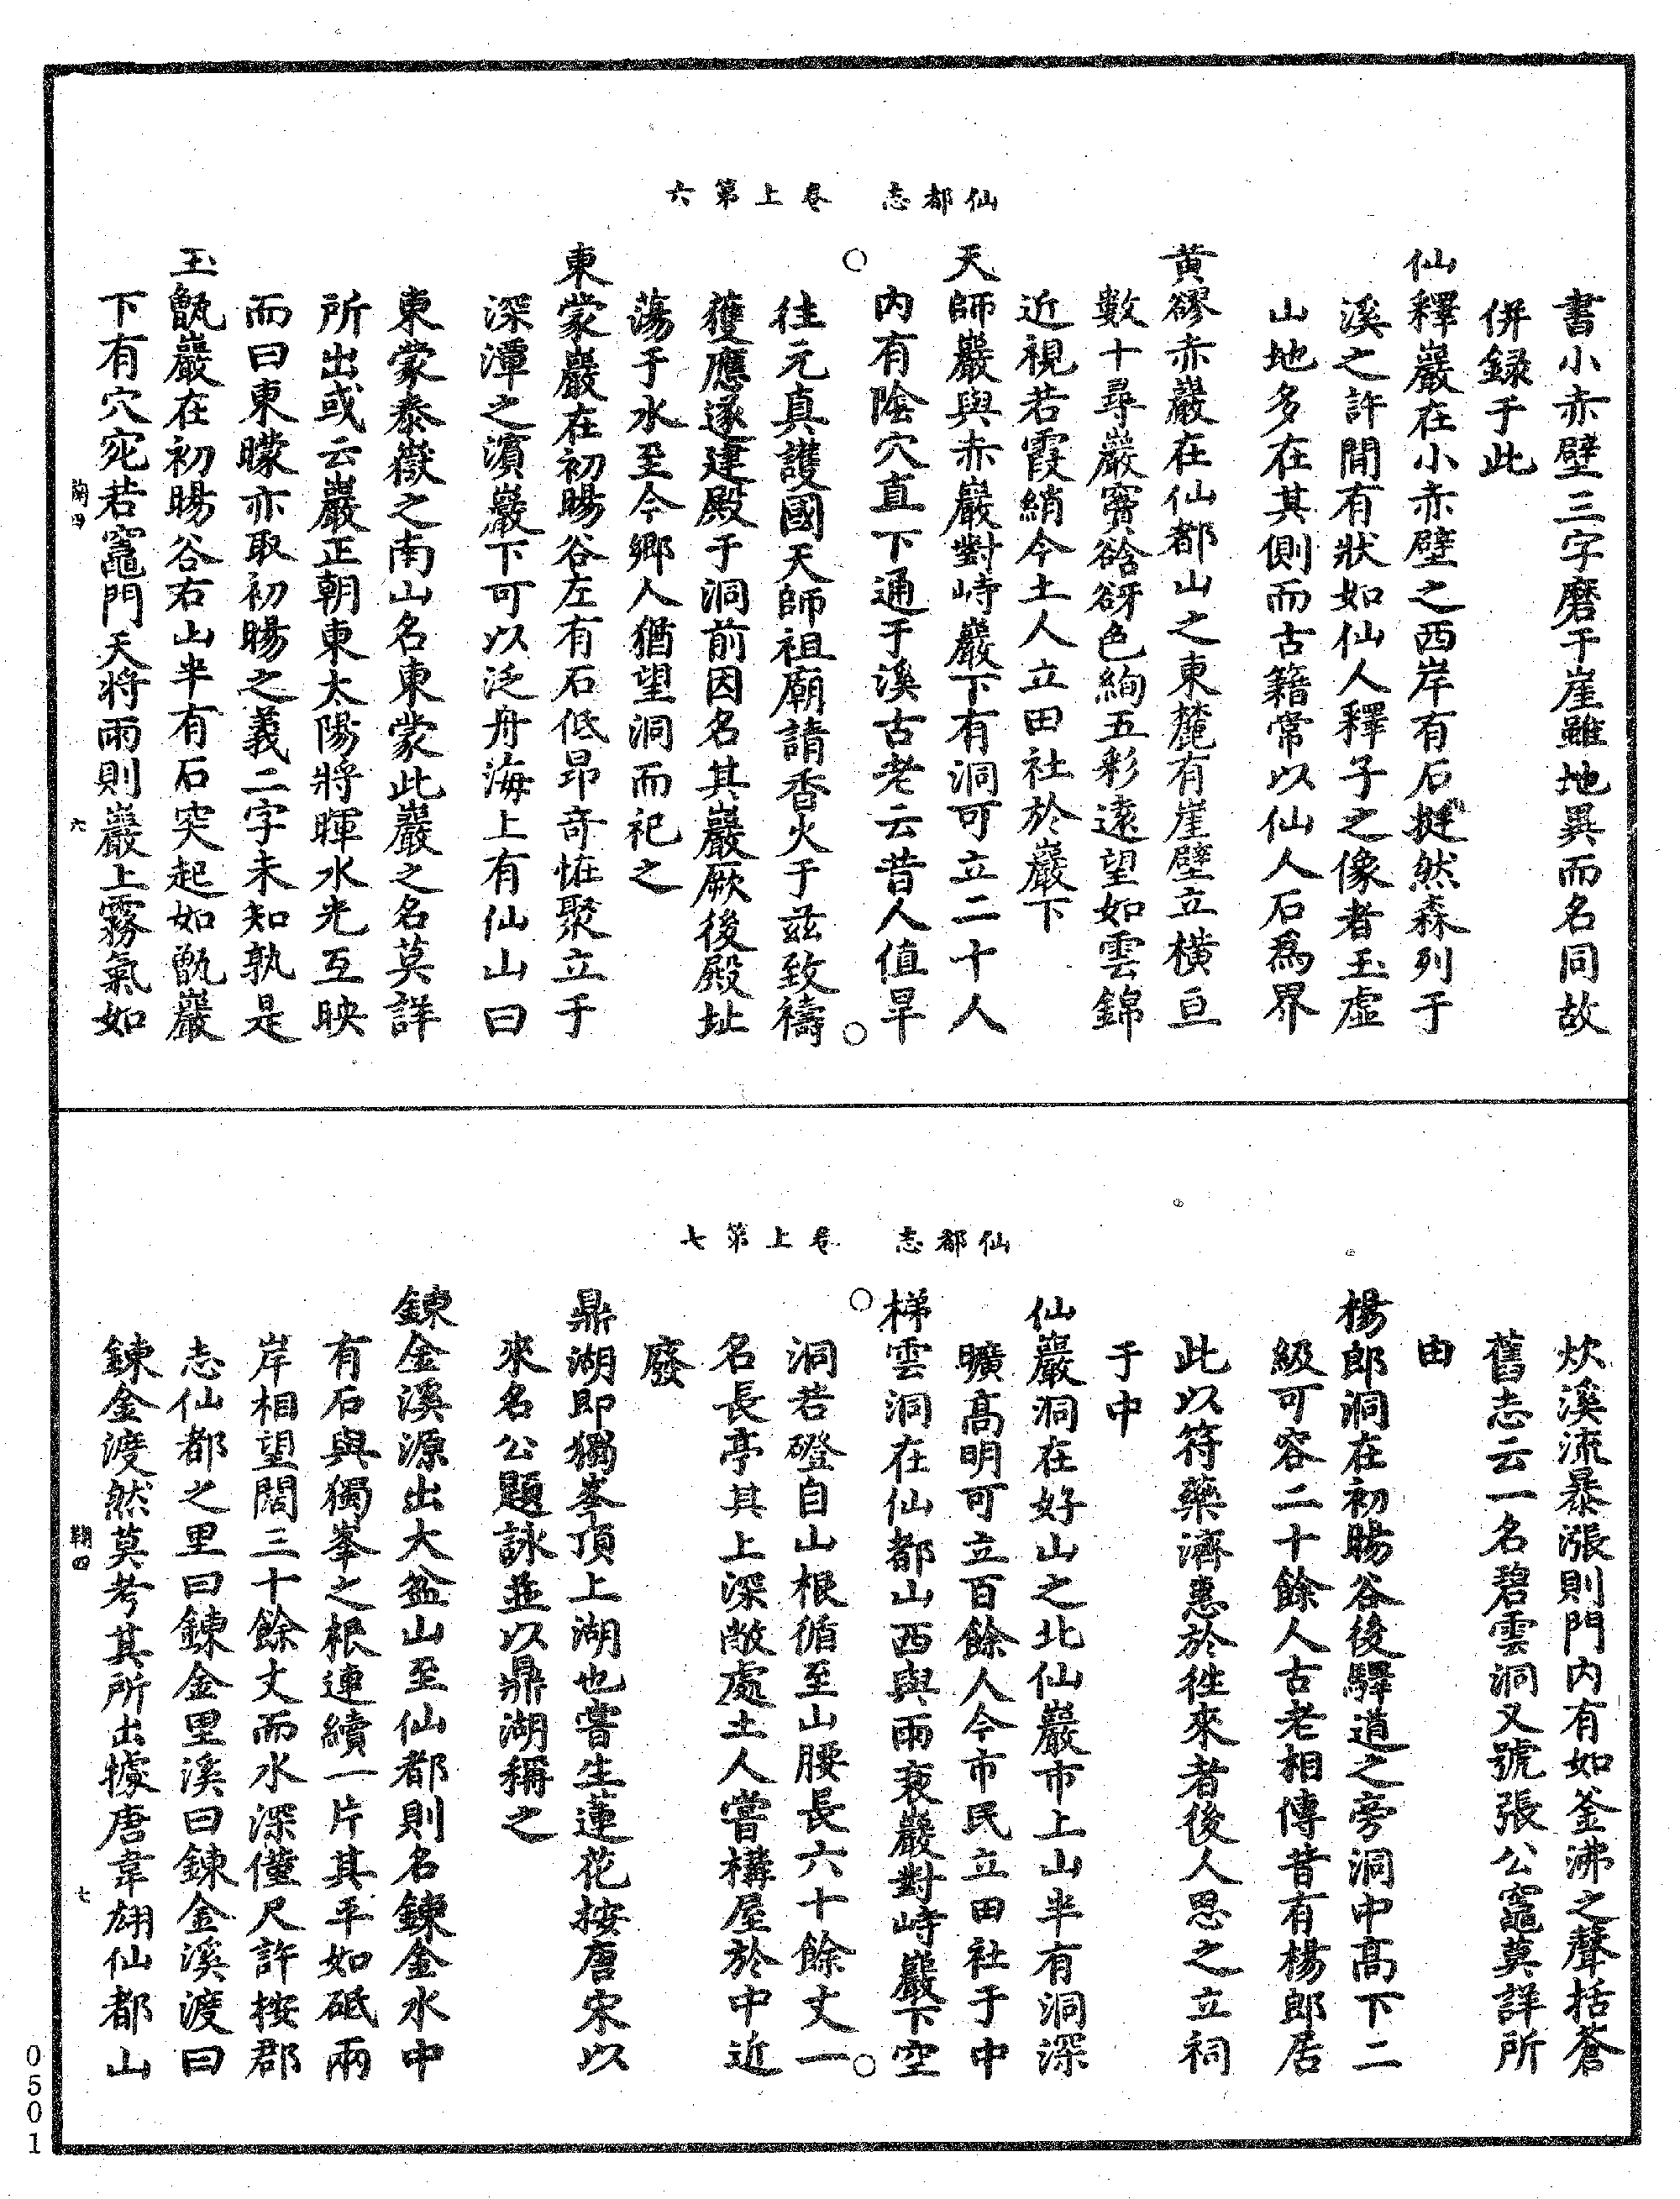 仙都志　卷上第六
書小赤壁三字磨于崖雖地異而名同故
併録于此
仙釋巖在小赤壁之西岸有石挺然森列于
溪之許間有狀如仙人釋子之像者玉虛
山地多在其側而古籍常以仙人石爲界
黄繆赤巖在仙都山之東麓有崖壁立横亘
數十尋巖竇谽谺色絢五彩遠望如雲錦
近視若霞綃今土人立田社於巖下
天師巖與赤巖對峙巖下有洞可立二十人
内有陰穴直下通于溪古老云昔人值旱
往元真護國天師祖廟請香火于兹致禱
獲應遂建殿于洞前因名其巖厥後殿址
蕩于水至今鄉人猶望洞而祀之
東蒙巖在初暘谷左有石低昂竒恠聚立于
深潭之濵巖下可以泛舟海上有仙山曰
東蒙泰嶽之南山名東蒙此巖之名莫詳
所出或云巖正朝東太陽將暉水光互映
而曰東曚亦取初暘之義二字未知孰是
玉甑巖在初暘谷右山半有石突起如甑巖
下有穴宛若竈門天將雨則巖上霧氣如
六
仙都志　卷上第七
炊溪流暴漲則門内有如釜沸之聲括蒼
舊志云一名碧雲洞又號張公竈莫詳所
由
楊郎洞在初暘谷後驛道之旁洞中高下二
級可容二十餘人古老相傳昔有楊郎居
此以符藥濟惠於徃來者後人思之立祠
于中
仙巖洞在好山之北仙巖市上山半有洞深
曠高明可立百餘人今市民立田社于中
梯雲洞在仙都山西與雨衮巖對峙巖下空
洞若磴自山根循至山腰長六十餘丈一
名長亭其上深敞處土人嘗構屋於中近
廢
鼎湖即獨峯頂上湖也嘗生蓮花按唐宋以
來名公題詠並以鼎湖稱之
鍊金溪源出大盆山至仙都則名鍊金水中
有石與獨峯之根連續一片其平如砥兩
岸相望闊三十餘丈而水深僅尺許按郡
志仙都之里曰鍊金里溪曰鍊金溪渡曰
鍊金渡然莫考其所出據唐韋翃仙都山
七
0501